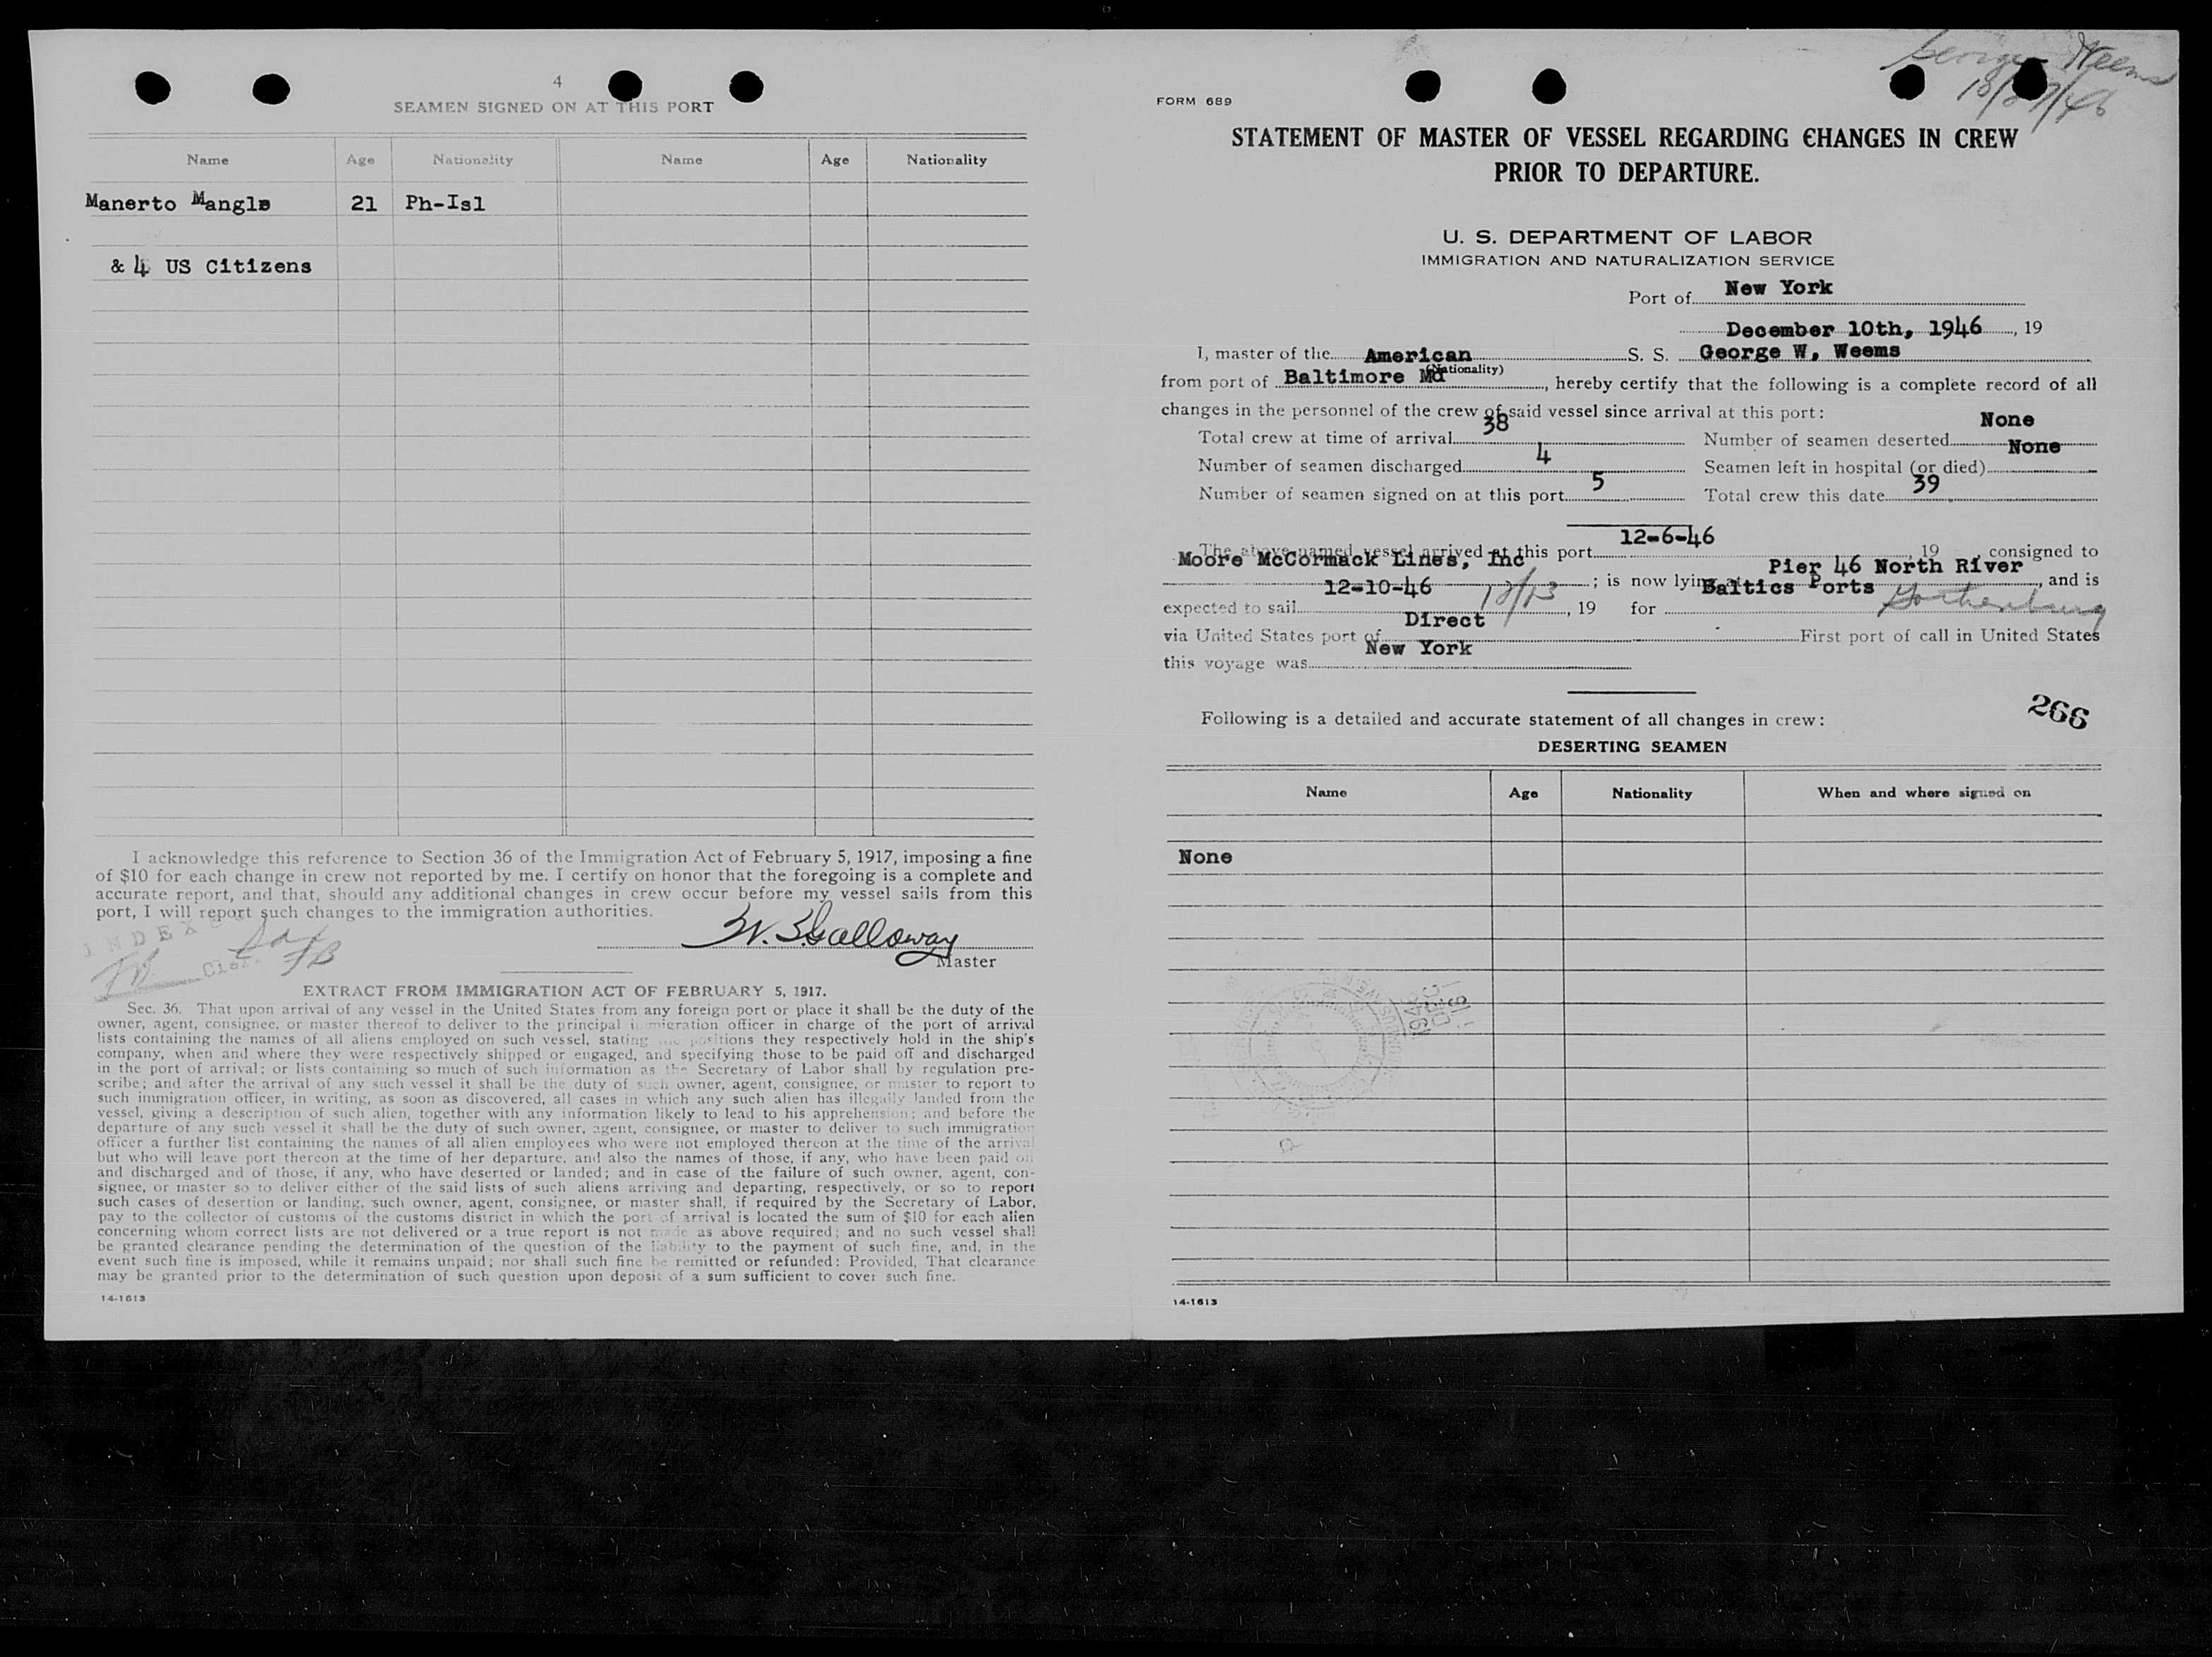 4
SEAMEN SIGNED ON AT THIS PORT
Name Age Nationality Name Age Nationality
Manerto 21 Ph-Isl
& 4 US Citizens
I acknowledge this reference to Section 36 of the Immigration Act of February 5, 1917, imposing a fine
of $10 for each change in crew not reported by me. I certify on honor that the foregoing is a complete and
accurate report, and that, should any additional changes in crew occur before my vessel sails from this
port, I will report such changes to the immigration authorities.
Galloway
Master
EXTRACT FROM IMMIGRATION ACT OF FEBRUARY 5, 1917.
Sec. 36. That upon arrival of any vessel in the United States from any foreign port or place it shall be the duty of the
owner, agent, consignee, or master thereof to deliver to the principal immigration officer in charge of the port of arrival
lists containing the names of all aliens employed on such vessel, stating the positions they respectively hold in the ship's
company, when and where they were respectively shipped or engaged, and specifying those to be paid off and discharged
in the port of arrival; or lists containing so much of such information as the Secretary of Labor shall by regulation pre-
scribe; and after the arrival of any such vessel it shall be the duty of such owner, agent, consignee, or master to report to
such immigration officer, in writing, as soon as discovered, all cases in which any such alien has illegally landed from the
vessel, giving a description of such alien, together with any information likely to lead to his apprehension; and before the
departure of any such vessel it shall be the duty of such owner, agent, consignee, or master to deliver to such immigration
officer a further list containing the names of all alien employees who were not employed thereon at the time of the arrival
but who will leave port thereon at the time of her departure, and also the names of those, if any, who have been paid off
and discharged and of those, if any, who have deserted or landed; and in case of the failure of such owner, agent, con-
signee, or master so to deliver either of the said lists of such aliens arriving and departing, respectively, or so to report
such cases of desertion or landing, such owner, agent, consignee, or master shall, if required by the Secretary of Labor,
pay to the collector of customs of the customs district in which the port of arrival is located the sum of $10 for each alien
concerning whom correct lists are not delivered or a true report is not made as above required; and no such vessel shall
be granted clearance pending the determination of the question of the liability to the payment of such fine, and, in the
event such fine is imposed, while it remains unpaid; nor shall such fine be remitted or refunded: Provided, That clearance
may be granted prior to the determination of such question upon deposit of a sum sufficient to cover such fine.
14-1613
George Weems
FORM 689
STATEMENT OF MASTER OF VESSEL REGARDING CHANGES IN CREW
PRIOR TO DEPARTURE.
U. S. DEPARTMENT OF LABOR
IMMIGRATION AND NATURALIZATION SERVICE
Port of New York
December 10th, 1946, 19
I, master of the American S. S. George W. Weems
(Nationality)
from port of Baltimore Md, hereby certify that the following is a complete record of all
changes in the personnel of the crew of said vessel since arrival at this port:
Total crew at time of arrival 38 Number of seamen deserted None
Number of seamen discharged 4 Seamen left in hospital (or died) None
Number of seamen signed on at this port 5 Total crew this date 39
The above-named vessel arrived at this port 12-6-46, 19 , consigned to
Moore McCormack Lines, Inc; is now lying at Pier 46 North River, and is
expected to sail 12-10-46 12/13, 19 for Baltics Ports Gothenburg
via United States port of Direct First port of call in United States
this voyage was New York
266
Following is a detailed and accurate statement of all changes in crew:
DESERTING SEAMEN
Name Age Nationality When and where signed on
None
14-1613